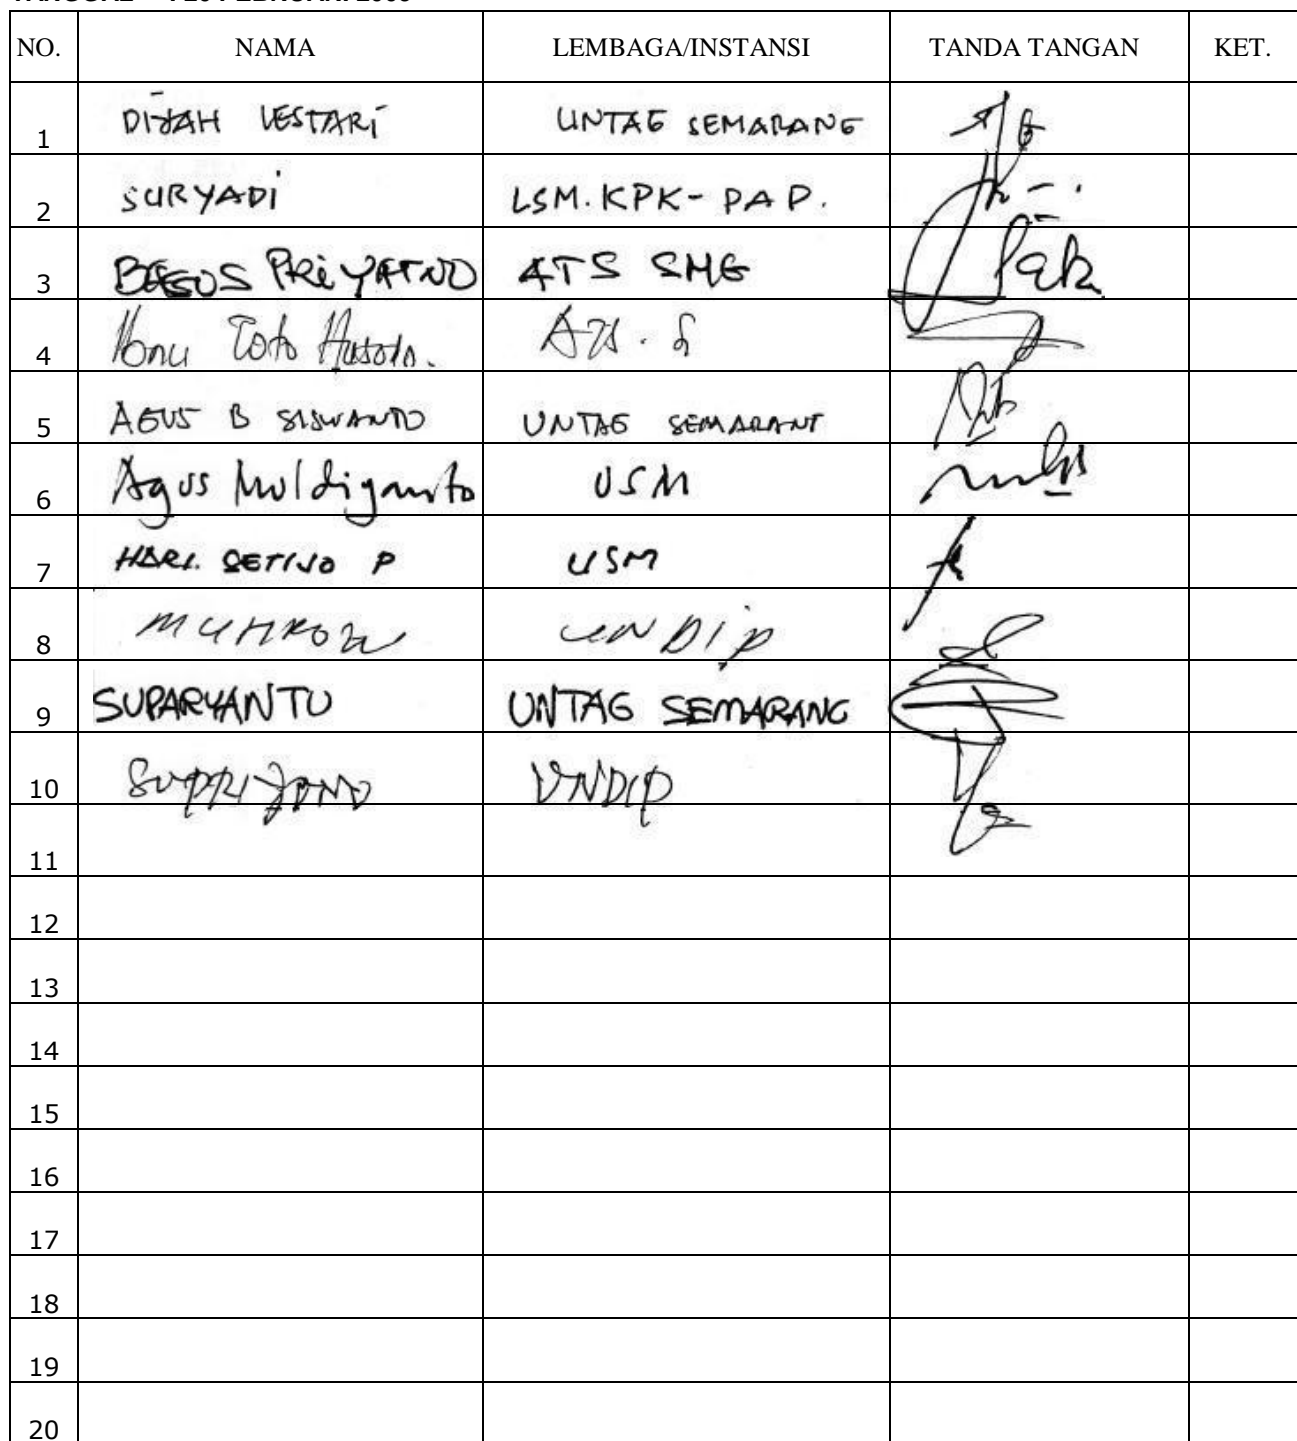 NO. NAMA LEMBAGA/INSTANSI TANDA TANGAN KET.
1 DIJAH LESTARI UNTAG SEMARANG
2 SURYADI LSM.KPK-PAP.
3 BAGUS PRIYATNO ATS SMG
4 Toto
5 AGUS B SISWANTO UNTAG SEMARANG
6 Agus Muldiyanto USM
7 HARI SETIJO P USM
8 UNDIP
9 SUPARYANTO UNTAG SEMARANG
10 SUPRIJONO UNDIP
11
12
13
14
15
16
17
18
19
20